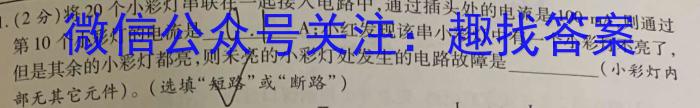 1.(2分)将20个小彩灯串联在一起接入电路中,通过插头处的电流是100 则通过
第10个小彩灯的电流是 A; 红发现该串小彩灯中 小彩灯不亮了,
微信公众号关注:趣找答案
但是其余的小彩灯都亮,则未亮的小彩灯处发生的电路故障是________(小彩灯内
部无其它元件)。(选填“短路”或“断路”)